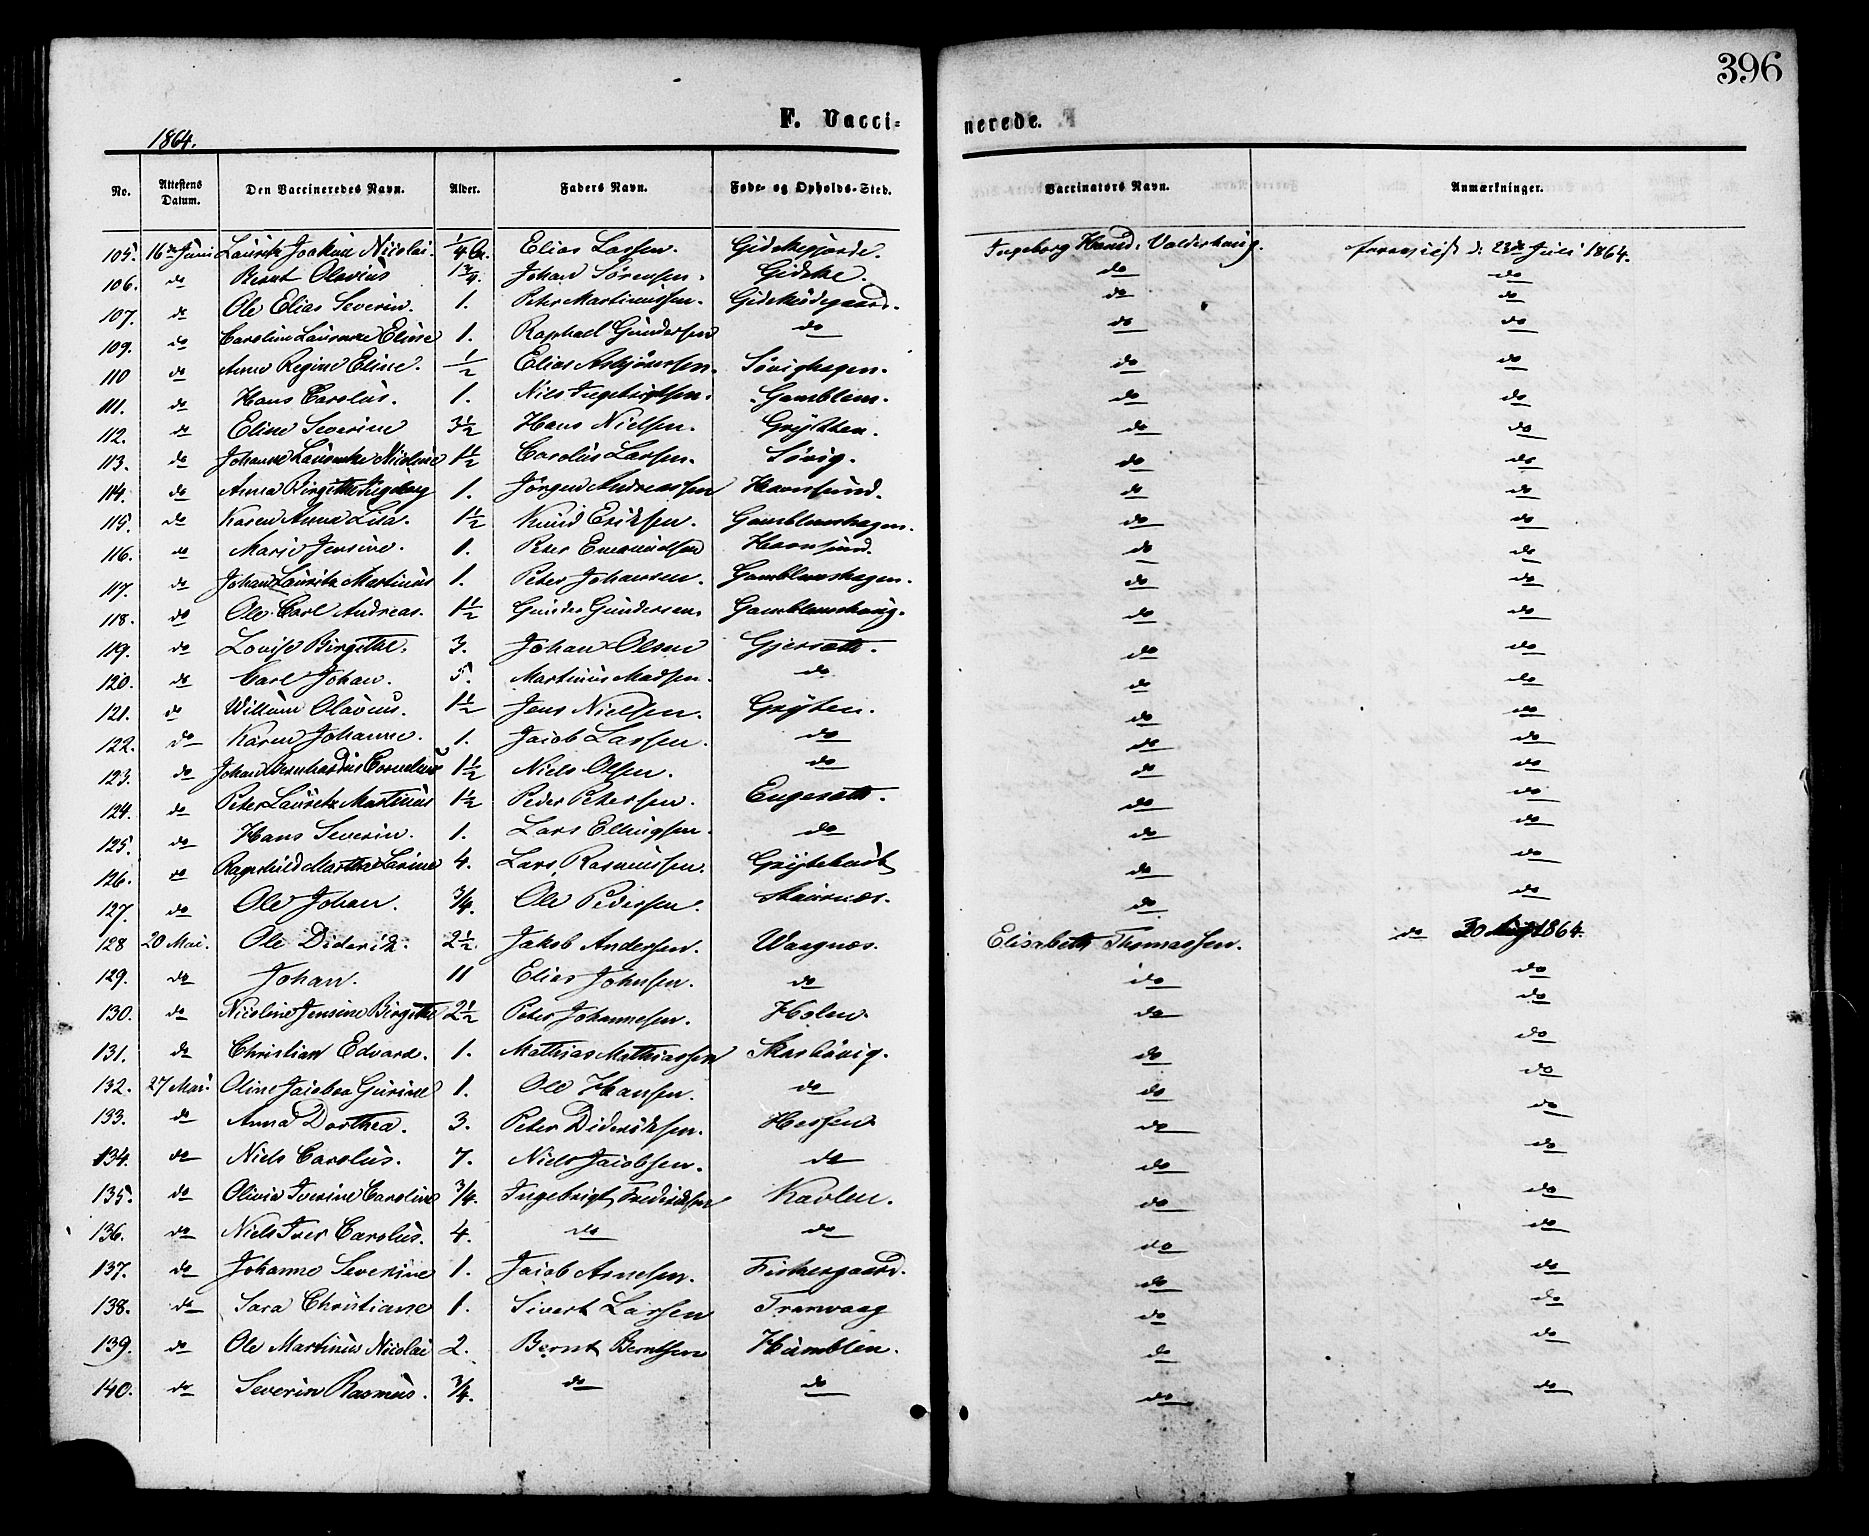 396
F. Vaccinerede.
1864.
No. Attestens Datum. Den Vaccineredes Navn. Alder. Faders Navn. Føde- og Opholds-Sted. Vaccinators Navn. Anmærkninger.
105. 16de Juni Lauritz Joakim Nicolai. 1/4 Elias Larsen. Gidskegjerde. Ingeborg Valderhaug. forevist d. 23de Juli 1864.
106. do Bernt Olavius 1 3/4. Johan Sørensen. Gidske. do do
107. do Ole Elias Severin. 1. Peter Martinussen. Gidskeødegaard. do do
109. do Caroline Laurentze Elise 1. Raphael Gundersen do do do
110 do Anne Regine Eline. 1/2 Elias Asbjörnsen. Søvighagen. do do
111. do Hans Carolus. 1. Niels Ingebrigtsen. Gamblem. do do
112. do Eline Severine 3 1/2 Hans Nielsen. Grytten. do do
113. do Johanne Laurentze Nicoline 1 1/2 Carolus Larsen. Søvig. do do
114. do Anna Birgitte Ingeborg 1. Jörgen Andreassen Havnsund. do do
115. do Karen Anna Lisa. 1 1/2 Knud Eriksen. Gamblemshagen. do do
116. do Marie Jensine. 1. Peter Havnsund. do do
117. do Johan Lauritz Martinus 1. Peter Johansen. Gamblemshagen. do do
118. do Ole Carl Andreas. 1 1/2 Gunder Gundersen. Gamblemshaug. do do
119. do Lovise Birgitte. 3. Johan Olsen Gjersæth. do do
120. do Carl Johan. 5. Martinus Madsen. do do do
121. do Willum Olavus. 1 1/2 Jens Nielsen. Gryten. do do
122. do Karen Johanne. 1. Jacob Larsen. do do do
123. do Johan Bernhardus Cornelius 1 1/2 Niels Olsen. do do do
124. do Peter Lauritz Martinus 1 1/2 Peder Petersen. Engesæth. do do
125. do Hans Severin. 1. Lars Ellingsen. do do do
126. do Ragnhild Marthe Lovine 4. Lars Rasmussen. do do
127. do Ole Johan. 3/4. Ole Pedersen. Skuurnæs. do do
128 20 Mai. Ole Diderik. 2 1/2. Jakob Andersen. Waagnæs. Elisabeth Thomassen. do 30 Aug 1864.
129. do Johan. 11 Elias Johnsen. do do do
130. do Nicoline Jensine Birgitte 2 1/2 Peter Johannesen. Holen. do do
131. do Christian Edvard. 1. Mathias Mathiassen Skarbövig. do do
132. 27 Mai. Oline Jacobea Gurine 1. Ole Hansen. do do do
133. do Anna Dorthea. 3. Peter Dideriksen. Hessen do do
134. do Niels Carolus. 7. Niels Jacobsen. do do do
135. do Olivie Iverine Caroline 3/4. Ingebrigt Frederiksen Kavlen. do do
136. do Niels Iver Carolus. 4. do do do do
137. do Johanne Severine 1. Jacob Arnesen. Fiskergaard. do do
138. do Sara Christiane 1. Sivert Larsen Tranvaag do do
139. do Ole Martinus Nicolai 2. Bernt Berntsen Humblen. do do
140. do Severin Rasmus. 3/4. do do do do